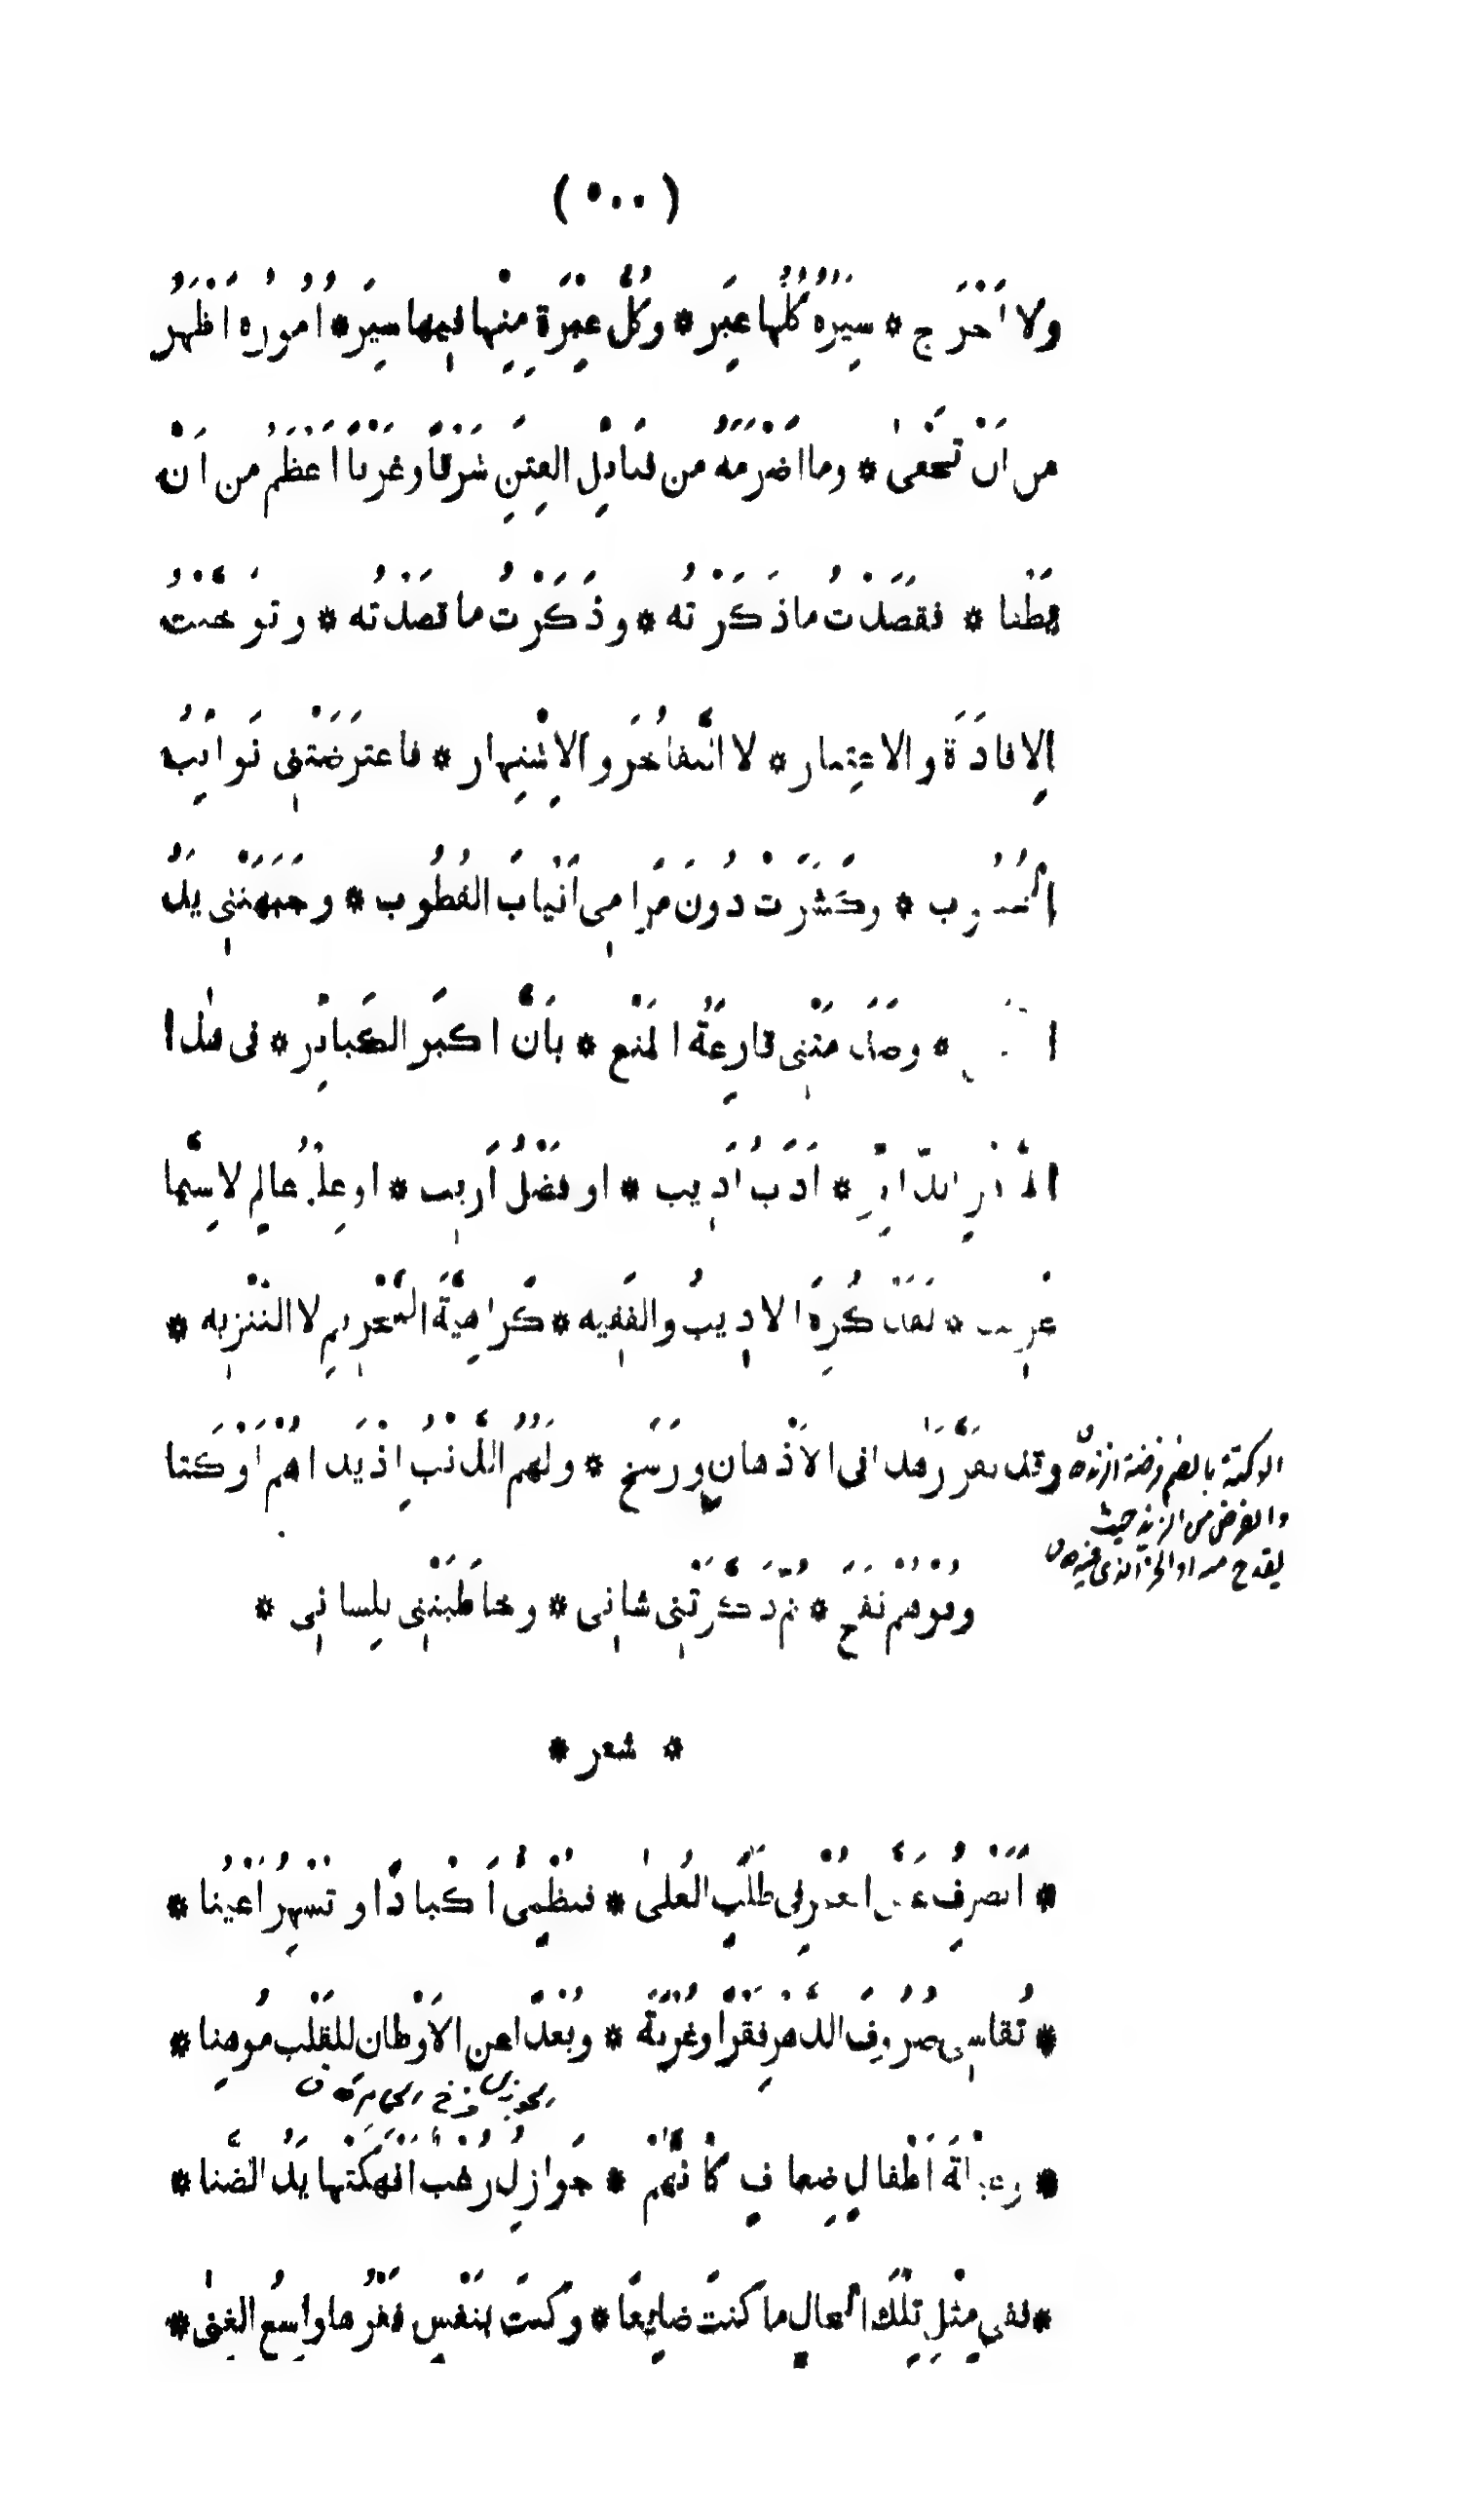 (٥٠٠)
ولا اَخْرَج * سِيَرُهُ كُلُّها عِبَر * وكُلُّ عِبْرَة مِنْها فيها سِيَر * اُمُورُه اَظْهَرُ
من اَنْ تَخْفىٰ * وما اَضْرَمَهُ من قنادِيلِ الفِتَنِ شَرْقًا وغَرْبًا اَعْظَمُ من اَنْ
يُطْفا * فقَصَدْتُ ماذَكَرْتُه * وذَكَرْتُ ما قَصَدْتُه * وتَوَخَّيْتُ
الِافادَةَ والاعتِبار * لا التَّفاخُرَ والاِشْتِهار * فاعتَرَضَتْنِي نَوائِبُ
الخُطُوب * وكَشَرَتْ دُونَ مَرامِي اَنْيابَ القُطُوب * وجَبَهَتْنِي يَدُ
* وصَدَمَتْنِي قارِعَةُ المَنْع * بِاَنَّ اكبَرَ الكَبائِر * فى هٰذا
* اَدَبُ اَدِيب * او فَضْلُ اَرِيب * او عِلْمُ عالِم لاسِيَّما
غَرِيب * فقد كُرِهَ الادِيبُ والفَقِيه * كَراهِيَّةَ التَّحْرِيمِ لا التَّنْزِيه *
وقد تَقَرَّرَ هٰذا فى الاَذْهانِ ورَسَخ * ولَهُمُ الذَّنْبُ اذْ يَداهُمْ اَوْكَتا
وفُوْهُمْ نَفَخ * ثُمَّ ذَكَّرَتْنِي شانِي * وخاطَبَتْنِي بِلِسانِي *
* شعر *
* اَتَصْرِفُ عُمْرًا فى طَلَبِ العُلىٰ * فتُظْمِئُ اَكْبادًا وتُسْهِرُ اَعْيُنا *
* تُقاسِي صُرُوفَ الدَّهْرِ فَقْرًا وغُرْبَةً * وبُعْدًا عن الاَوْطان للقَلْبِ مُوهِنا *
* اَطْفالٍ ضِعافٍ كَاَنَّهُمْ * جَوازِلُ رُغْبٌ اَنْهَكَتْها يَدُ الضَّنا *
* ففى مِثْلِ تِلْكَ الحالِ ما كنتَ ضايِعًا * وكنتَ بنَفْسٍ فَقْرُها واسِعُ الغِنٰى *